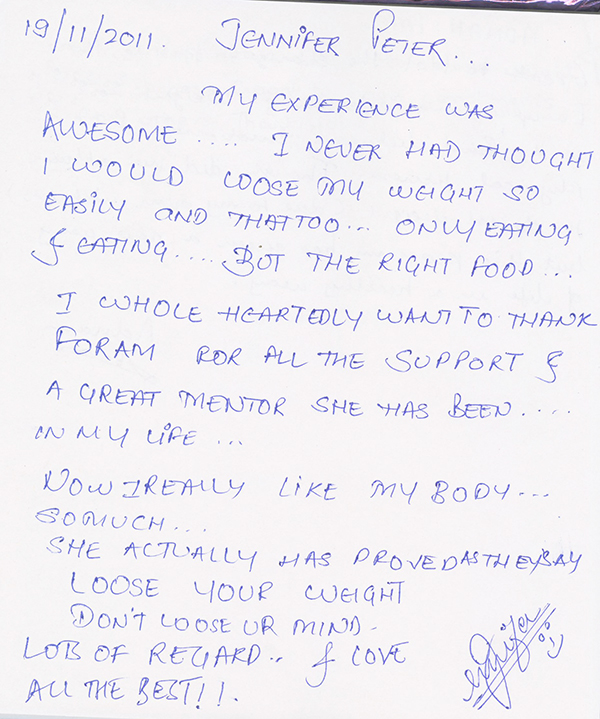 19/11/2011. JENNIFER PETER...
MY EXPERIENCE WAS
AWESOME .... I NEVER HAD THOUGHT
I WOULD LOOSE MY WEIGHT SO
EASILY AND THAT TOO... ONLY EATING
& EATING.... BUT THE RIGHT FOOD...
I WHOLE HEARTEDLY WANT TO THANK
FORAM FOR ALL THE SUPPORT &
A GREAT MENTOR SHE HAS BEEN....
IN MY LIFE ...
NOW I REALLY LIKE MY BODY...
SO MUCH...
SHE ACTUALLY HAS PROVED AS THEY SAY
LOOSE YOUR WEIGHT
DON'T LOOSE UR MIND.
LOTS OF REGARD.. & LOVE
ALL THE BEST!!.